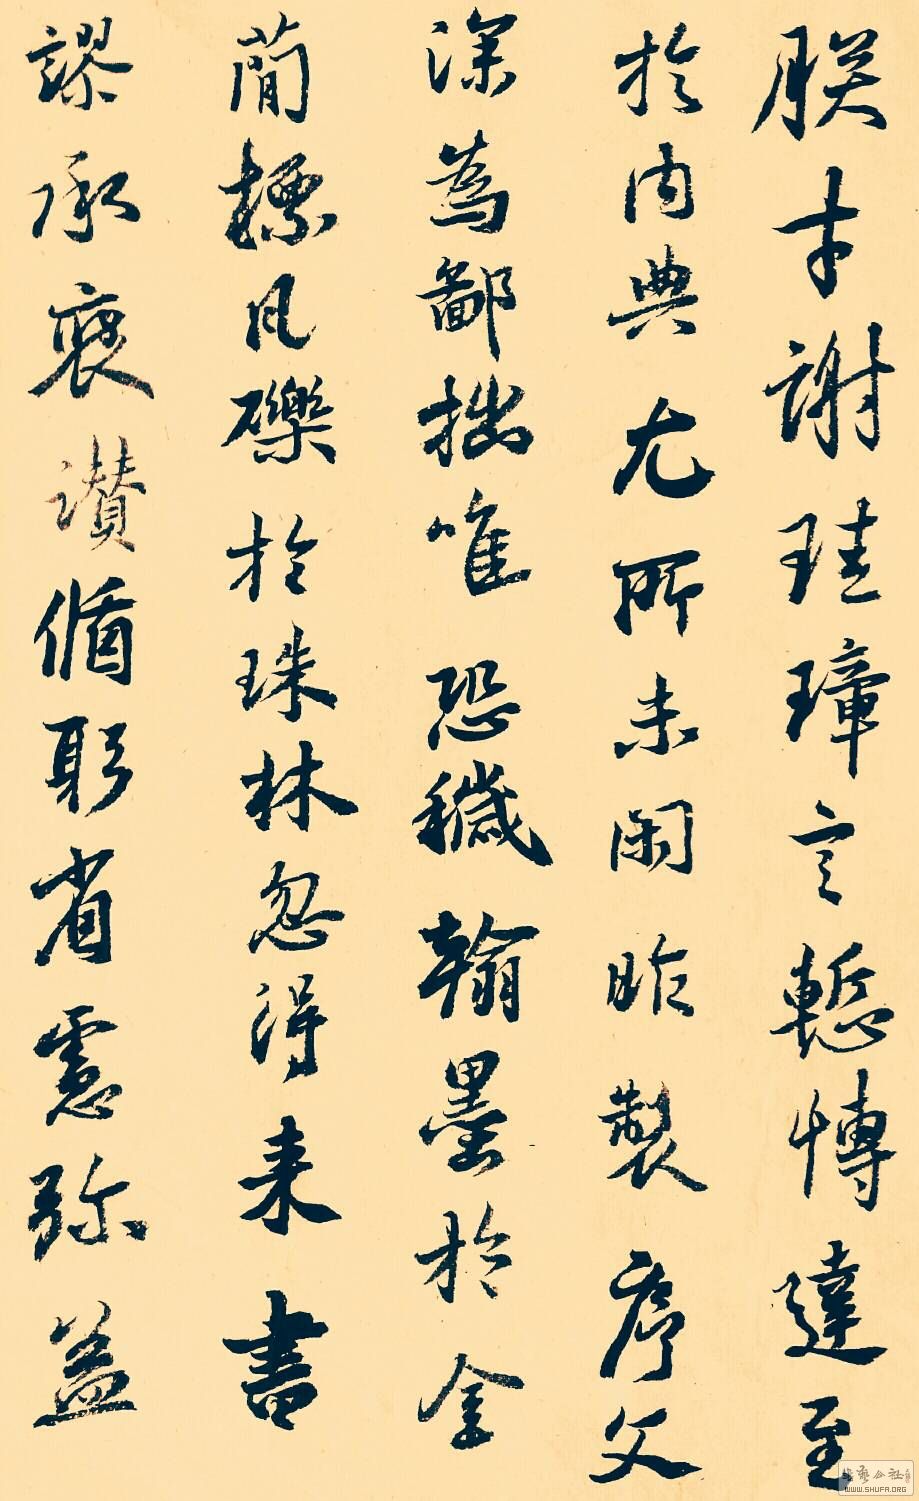 朕才謝珪璋言慙博達至
於内典尤所未閑昨製序文
深為鄙拙唯恐穢翰墨於金
簡標瓦礫於珠林忽得来書
謬承褒讃循躬省慮弥益
書藝公社
WWW.SHUFA.ORG